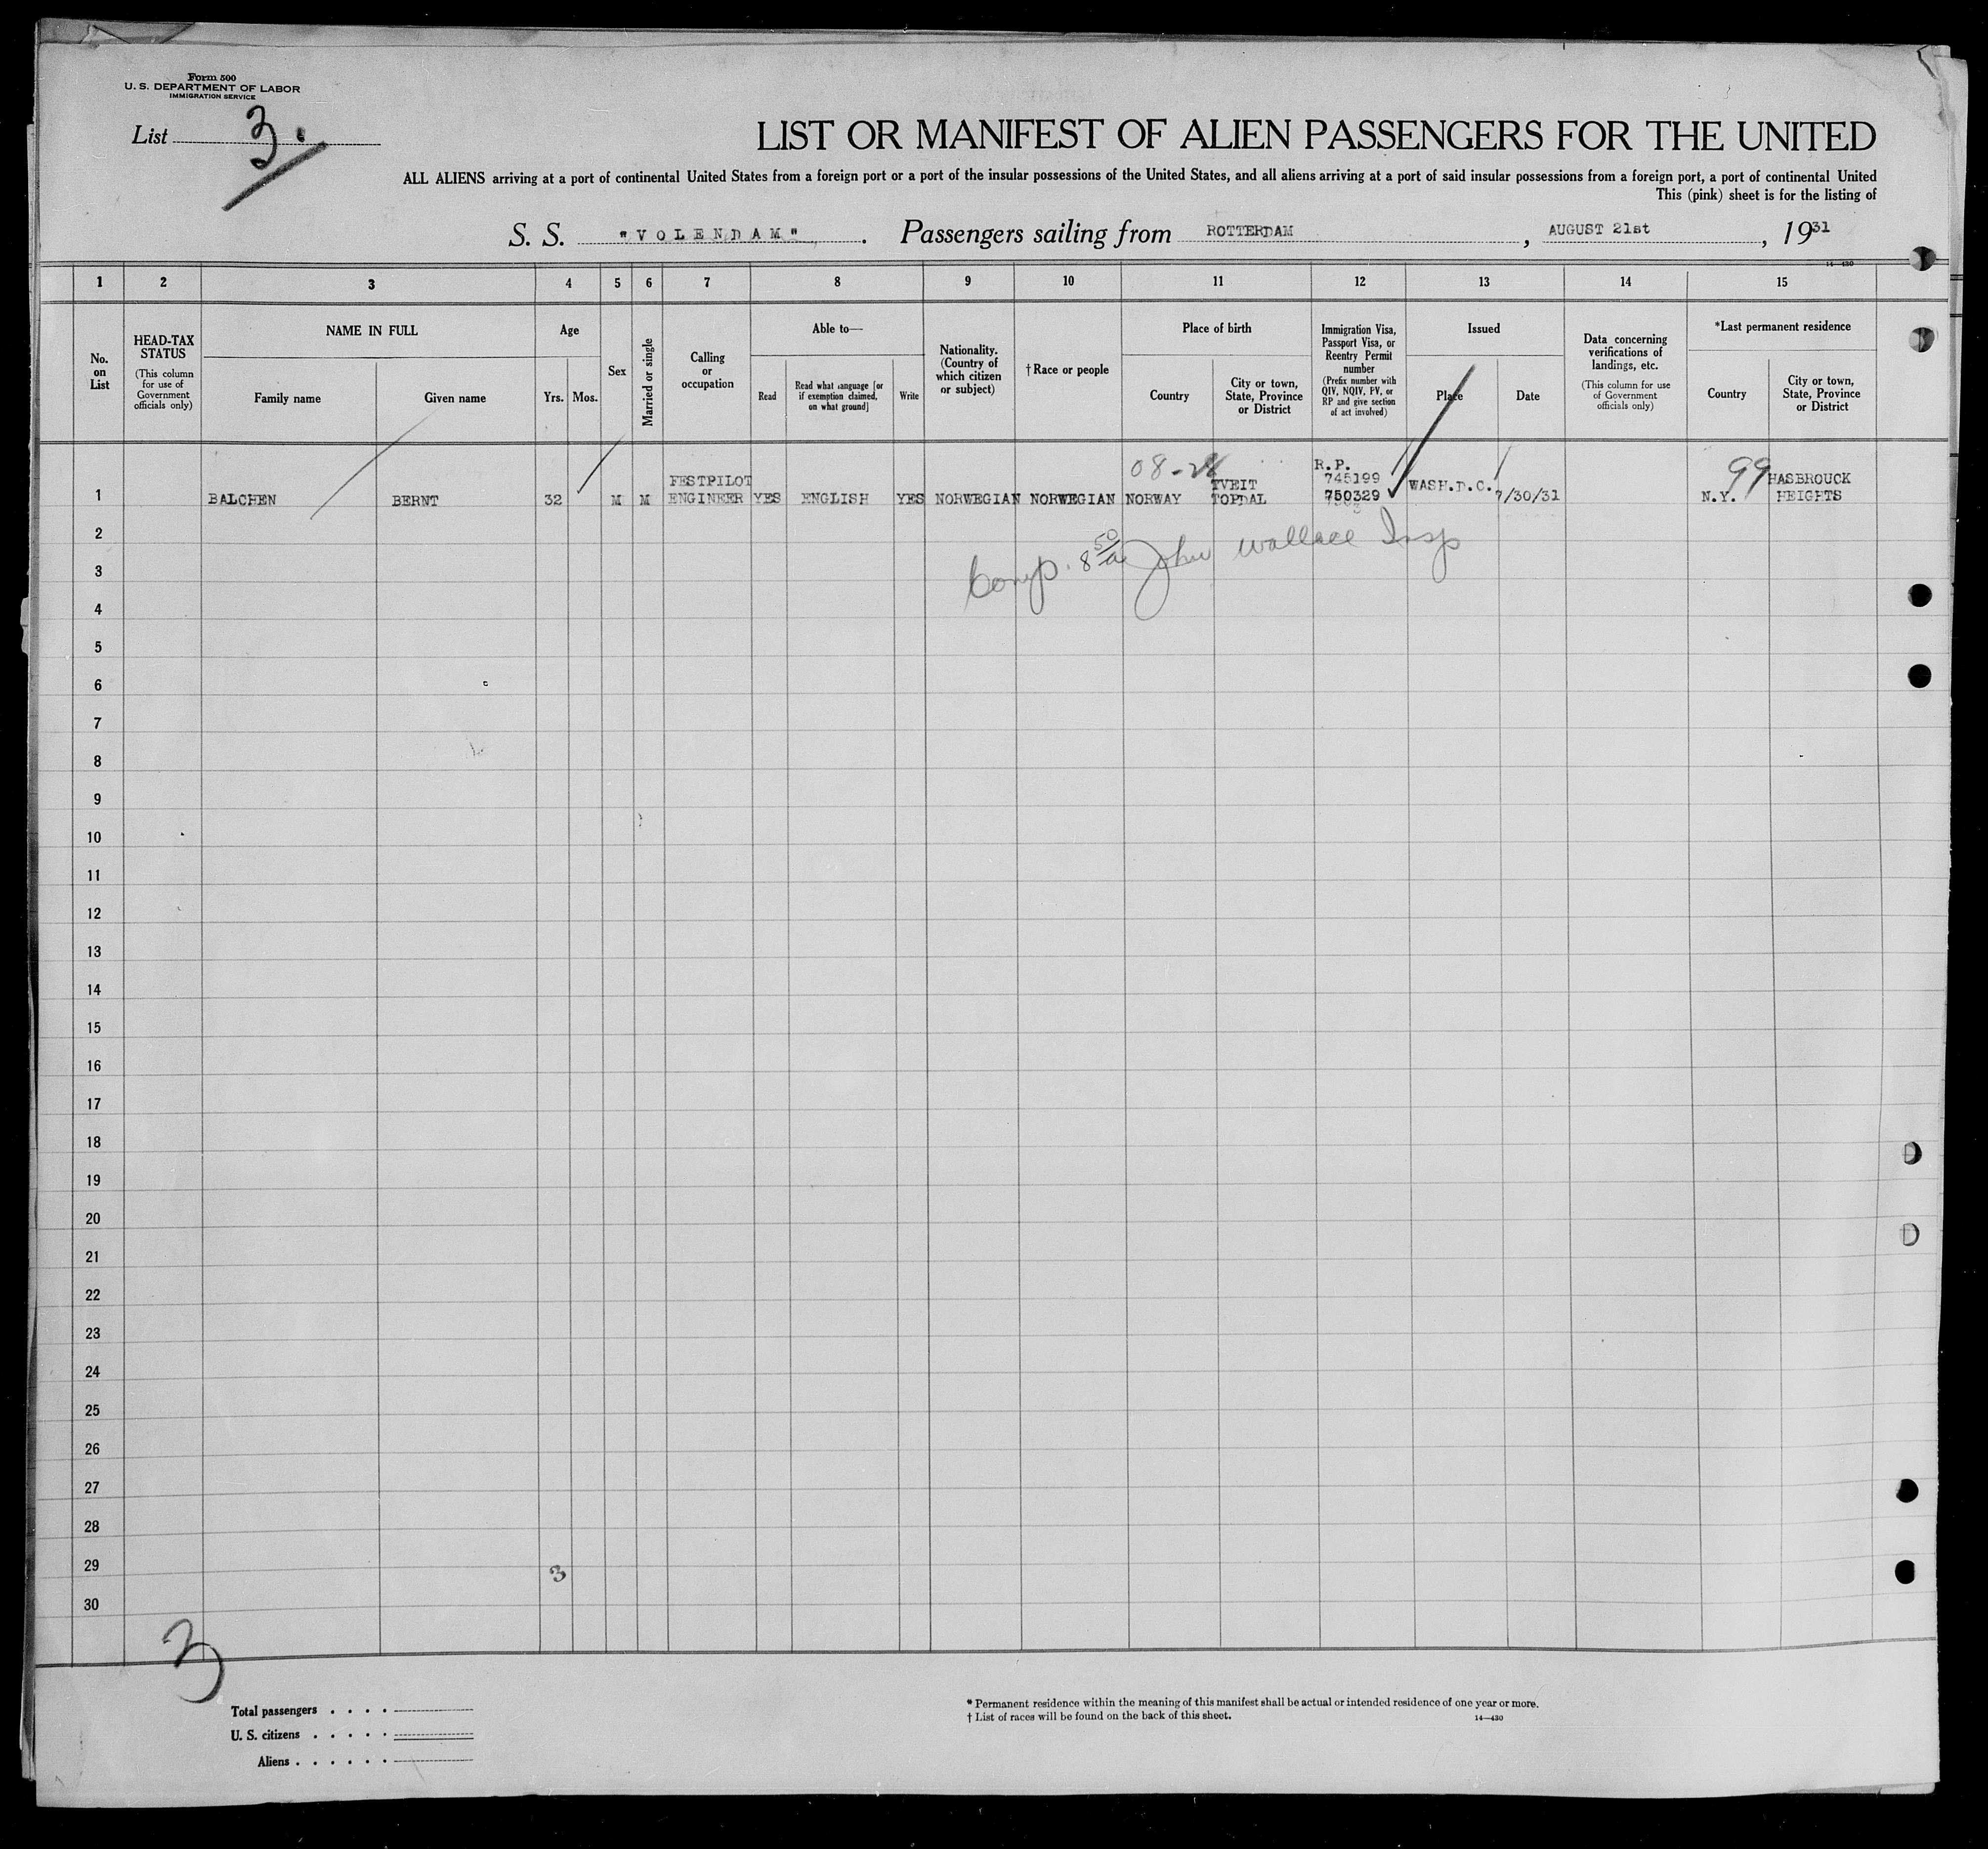 Form 500
U. S. DEPARTMENT OF LABOR
IMMIGRATION SERVICE
List 3.
LIST OR MANIFEST OF ALIEN PASSENGERS FOR THE UNITED
ALL ALIENS arriving at a port of continental United States from a foreign port or a port of the insular possessions of the United States, and all aliens arriving at a port of said insular possessions from a foreign port, a port of continental United
This (pink) sheet is for the listing of
S. S. "VOLENDAM". Passengers sailing from ROTTERDAM, AUGUST 21st, 1931
14—430
1 2 3 4 5 6 7 8 9 10 11 12 13 14 15
No. on List
HEAD-TAX STATUS
(This column for use of Government officials only)
NAME IN FULL
Family name
Given name
Age
Yrs. Mos.
Sex
Married or single
Calling or occupation
Able to—
Read
Read what language [or if exemption claimed, on what ground]
Write
Nationality. (Country of which citizen or subject)
†Race or people
Place of birth
Country
City or town, State, Province or District
Immigration Visa, Passport Visa, or Reentry Permit number
(Prefix number with QIV, NQIV, PV, or RP and give section of act involved)
Issued
Place
Date
Data concerning verifications of landings, etc.
(This column for use of Government officials only)
*Last permanent residence
Country
City or town, State, Province or District
1 BALCHEN BERNT 32 M M FESTPILOT ENGINEER YES ENGLISH YES NORWEGIAN NORWEGIAN NORWAY TVEIT TOPDAL R.P. 745199 750329 WASH.D.C. 7/30/31 N.Y. HASBROUCK HEIGHTS
99
Comp. 8 50/a John Wallace Insp
2
3
4
5
6
7
8
9
10
11
12
13
14
15
16
17
18
19
20
21
22
23
24
25
26
27
28
29 3
30
3
Total passengers . . . .
U. S. citizens . . . . .
Aliens . . . . . .
* Permanent residence within the meaning of this manifest shall be actual or intended residence of one year or more.
† List of races will be found on the back of this sheet.
14—430